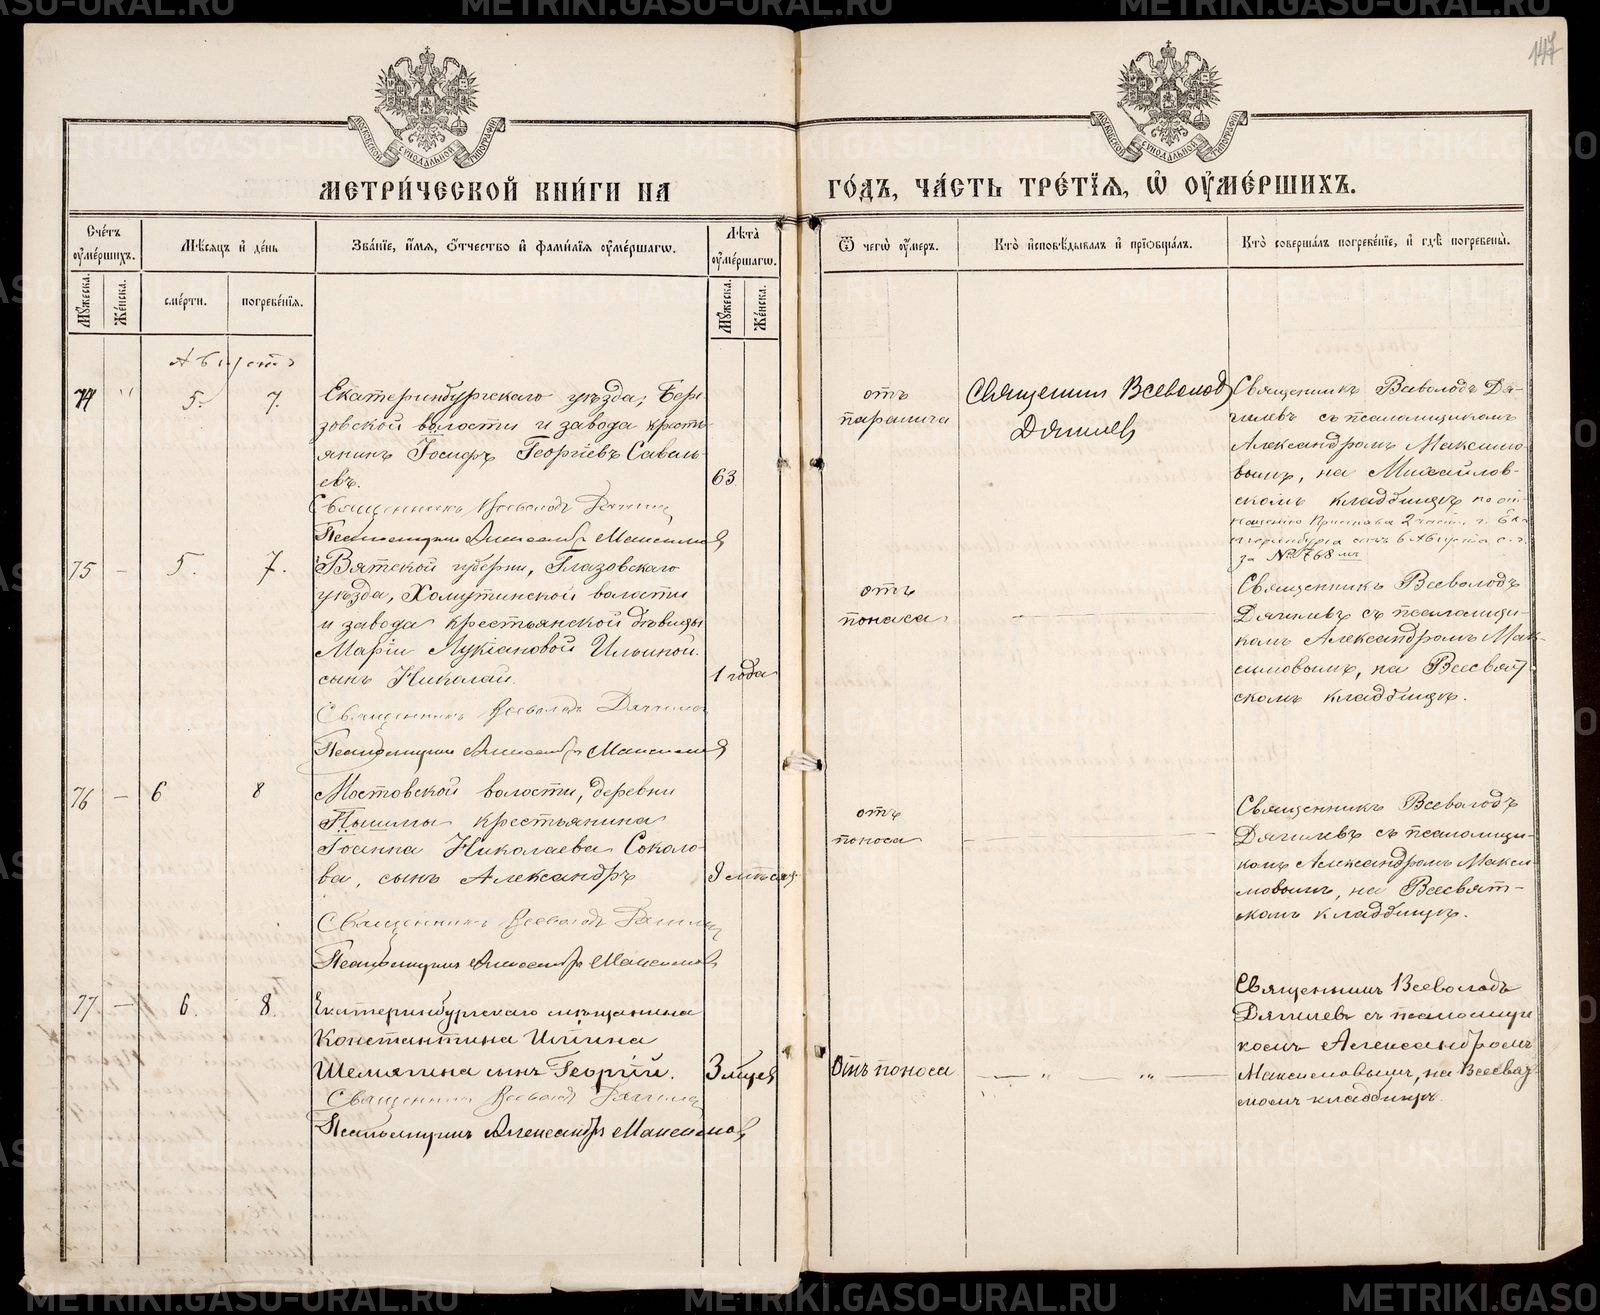 147
МОСКОВСКОЙ СѴНОДАЛЬНОЙ ТИПОГРАФІИ
МОСКОВСКОЙ СѴНОДАЛЬНОЙ ТИПОГРАФІИ
МЕТРИ́ЧЕСКОЙ КНИ́ГИ НА
ГО́ДЪ, ЧА́СТЬ ТРЕ́ТІѦ, Ѡ҆ ОУ҆МЕ́РШИХЪ.
Сче́тъ оу҆ме́ршихъ.
Мѣ́сяцъ и҆ де́нь
Зва́нїе, и҆́мя, ѻ҆́тчество и҆ фами́лїя оу҆ме́ршагѡ.
Лѣ́та оу҆ме́ршагѡ.
Ѿ чегѡ̀ оу҆́меръ.
Кто̀ и҆сповѣ́дывалъ и҆ прїѡбща́лъ.
Кто̀ соверша́лъ погребе́нїе, и҆ гдѣ̀ погребены̀.
Му́жеска.
Же́нска.
сме́рти.
погребе́нїя.
Му́жеска.
Же́нска.
Августъ
74 " 5. 7.
Екатеринбургскаго уѣзда, Бере-
зовской волости и завода кресть-
янинъ Іосифъ Георгіевъ Саваль-
евъ.
63
Священникъ Всеволодъ Дягилевъ
Псаломщикъ Александръ Максимовъ
отъ
паралича
Священникъ Всеволодъ
Дягилевъ
Священникъ Всеволодъ Дя-
гилевъ съ псаломщикомъ
Александромъ Максимо-
вымъ, на Михайлов-
скомъ кладбищѣ по от-
ношенію Пристава 2 части г. Ека-
теринбурга отъ 6 Августа с. г.
за № 1768 мъ
75 – 5. 7.
Вятской губерніи, Глазовскаго
уѣзда, Холутинской волости
и завода крестьянской дѣвицы
Маріи Лукіановой Ильиной
сынъ Николай.
1 года
Священникъ Всеволодъ Дягилевъ
Псаломщикъ Александръ Максимовъ
отъ
поноса
Священникъ Всеволодъ
Дягилевъ съ псаломщи-
комъ Александромъ Мак-
симовымъ, на Всесвят-
скомъ кладбищѣ.
76 – 6 8
Мостовской волости, деревни
Пышмы крестьянина
Іоанна Николаева Соколо-
ва, сынъ Александръ
Священникъ Всеволодъ Дягилевъ
Псаломщикъ Александръ Максимовъ
отъ
поноса
Священникъ Всеволодъ
Дягилевъ съ псаломщи-
комъ Александромъ Макси-
мовымъ, на Всесвят-
скомъ кладбищѣ.
77 – 6. 8.
Екатеринбургскаго мѣщанина
Константина
Шемягина сынъ Георгій.
3 мѣсяц
Священникъ Всеволодъ Дягилевъ
Псаломщикъ Александръ Максимовъ
Отъ поноса
" "
Священникъ Всеволодъ
Дягилевъ съ псаломщи
комъ Александромъ
Максимовымъ, на Всесвят
скомъ кладбищѣ
METRIKI.GASO-URAL.RU